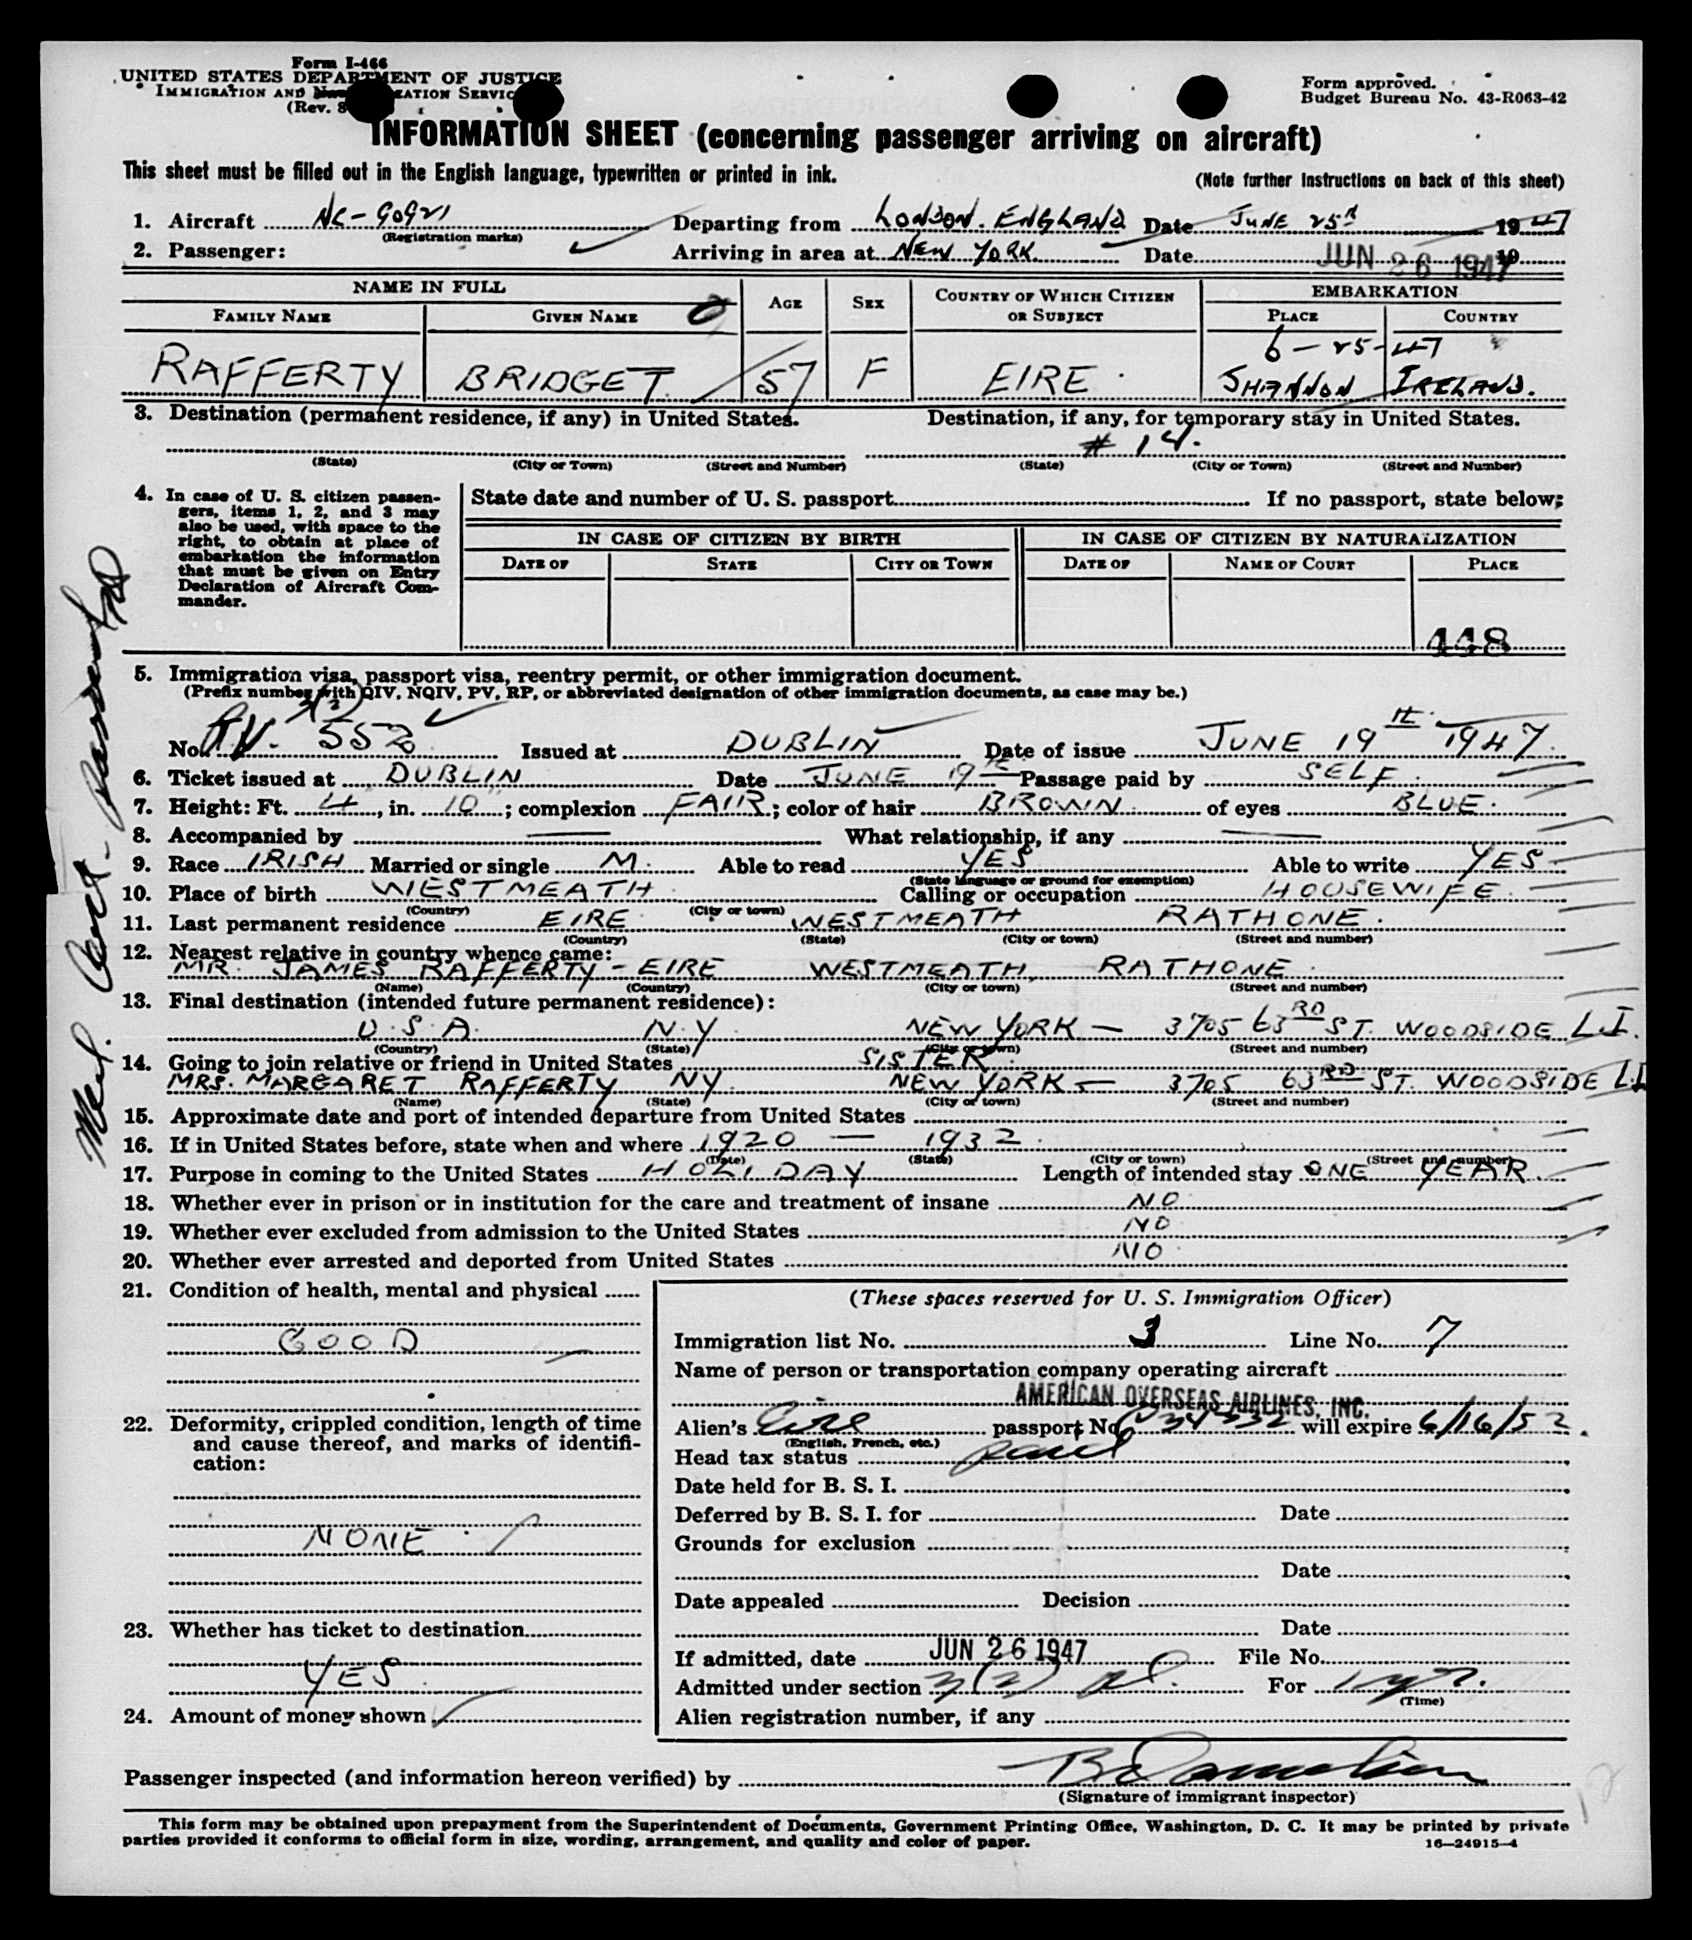 Form I-466
UNITED STATES DEPARTMENT OF JUSTICE
IMMIGRATION AND NATURALIZATION SERVICE
(Rev. 8
Form approved.
Budget Bureau No. 43-R063-42
INFORMATION SHEET (concerning passenger arriving on aircraft)
This sheet must be filled out in the English language, typewritten or printed in ink.
(Note further instructions on back of this sheet)
1. Aircraft NC-90921 Departing from LONDON. ENGLAND Date JUNE 25th 1947
(Registration marks)
2. Passenger: Arriving in area at NEW YORK Date JUN 26 1947 19
NAME IN FULL AGE SEX COUNTRY OF WHICH CITIZEN OR SUBJECT EMBARKATION
FAMILY NAME GIVEN NAME PLACE COUNTRY
6-25-47
RAFFERTY BRIDGET 57 F EIRE SHANNON IRELAND.
3. Destination (permanent residence, if any) in United States. Destination, if any, for temporary stay in United States.
# 14.
(State) (City or Town) (Street and Number) (State) (City or Town) (Street and Number)
4. In case of U. S. citizen passen-
gers, items 1, 2, and 3 may
also be used, with space to the
right, to obtain at place of
embarkation the information
that must be given on Entry
Declaration of Aircraft Com-
mander.
State date and number of U. S. passport If no passport, state below;
IN CASE OF CITIZEN BY BIRTH IN CASE OF CITIZEN BY NATURALIZATION
DATE OF STATE CITY OR TOWN DATE OF NAME OF COURT PLACE
448
5. Immigration visa, passport visa, reentry permit, or other immigration document.
(Prefix number with QIV, NQIV, PV, RP, or abbreviated designation of other immigration documents, as case may be.)
3(2)
No. P.V. 552 Issued at DUBLIN Date of issue JUNE 19th 1947.
6. Ticket issued at DUBLIN Date JUNE 19th Passage paid by SELF.
7. Height: Ft. 4, in. 10"; complexion FAIR; color of hair BROWN. of eyes BLUE.
8. Accompanied by — What relationship, if any —
9. Race IRISH Married or single M. Able to read YES Able to write YES.
(State language or ground for exemption)
10. Place of birth WESTMEATH Calling or occupation HOUSEWIFE.
(Country) (City or town)
11. Last permanent residence EIRE WESTMEATH RATHONE.
(Country) (State) (City or town) (Street and number)
12. Nearest relative in country whence came:
MR. JAMES RAFFERTY - EIRE WESTMEATH RATHONE.
(Name) (Country) (City or town) (Street and number)
13. Final destination (intended future permanent residence):
U.S.A. N.Y. NEW YORK — 3705 63RD ST. WOODSIDE L.I.
(Country) (State) (City or town) (Street and number)
14. Going to join relative or friend in United States SISTER.
MRS. MARGARET RAFFERTY NY. NEW YORK — 3705 63RD ST. WOODSIDE L.I
(Name) (State) (City or town) (Street and number)
15. Approximate date and port of intended departure from United States
16. If in United States before, state when and where 1920 — 1932.
(Date) (State) (City or town) (Street and number)
17. Purpose in coming to the United States HOLIDAY Length of intended stay ONE YEAR.
18. Whether ever in prison or in institution for the care and treatment of insane NO
19. Whether ever excluded from admission to the United States NO
20. Whether ever arrested and deported from United States NO
21. Condition of health, mental and physical
GOOD
22. Deformity, crippled condition, length of time
and cause thereof, and marks of identifi-
cation:
NONE
23. Whether has ticket to destination
YES
24. Amount of money shown
(These spaces reserved for U. S. Immigration Officer)
Immigration list No. 3 Line No. 7
Name of person or transportation company operating aircraft
AMERICAN OVERSEAS AIRLINES, INC.
Alien's Eire passport No. will expire 6/16/52.
(English, French, etc.)
Head tax status
Date held for B. S. I.
Deferred by B. S. I. for Date
Grounds for exclusion
Date
Date appealed Decision
Date
If admitted, date JUN 26 1947 File No.
Admitted under section 3(2) For 1 yr.
(Time)
Alien registration number, if any
Passenger inspected (and information hereon verified) by
(Signature of immigrant inspector)
This form may be obtained upon prepayment from the Superintendent of Documents, Government Printing Office, Washington, D. C. It may be printed by private
parties provided it conforms to official form in size, wording, arrangement, and quality and color of paper. 16—24915-4
Med. Cert.